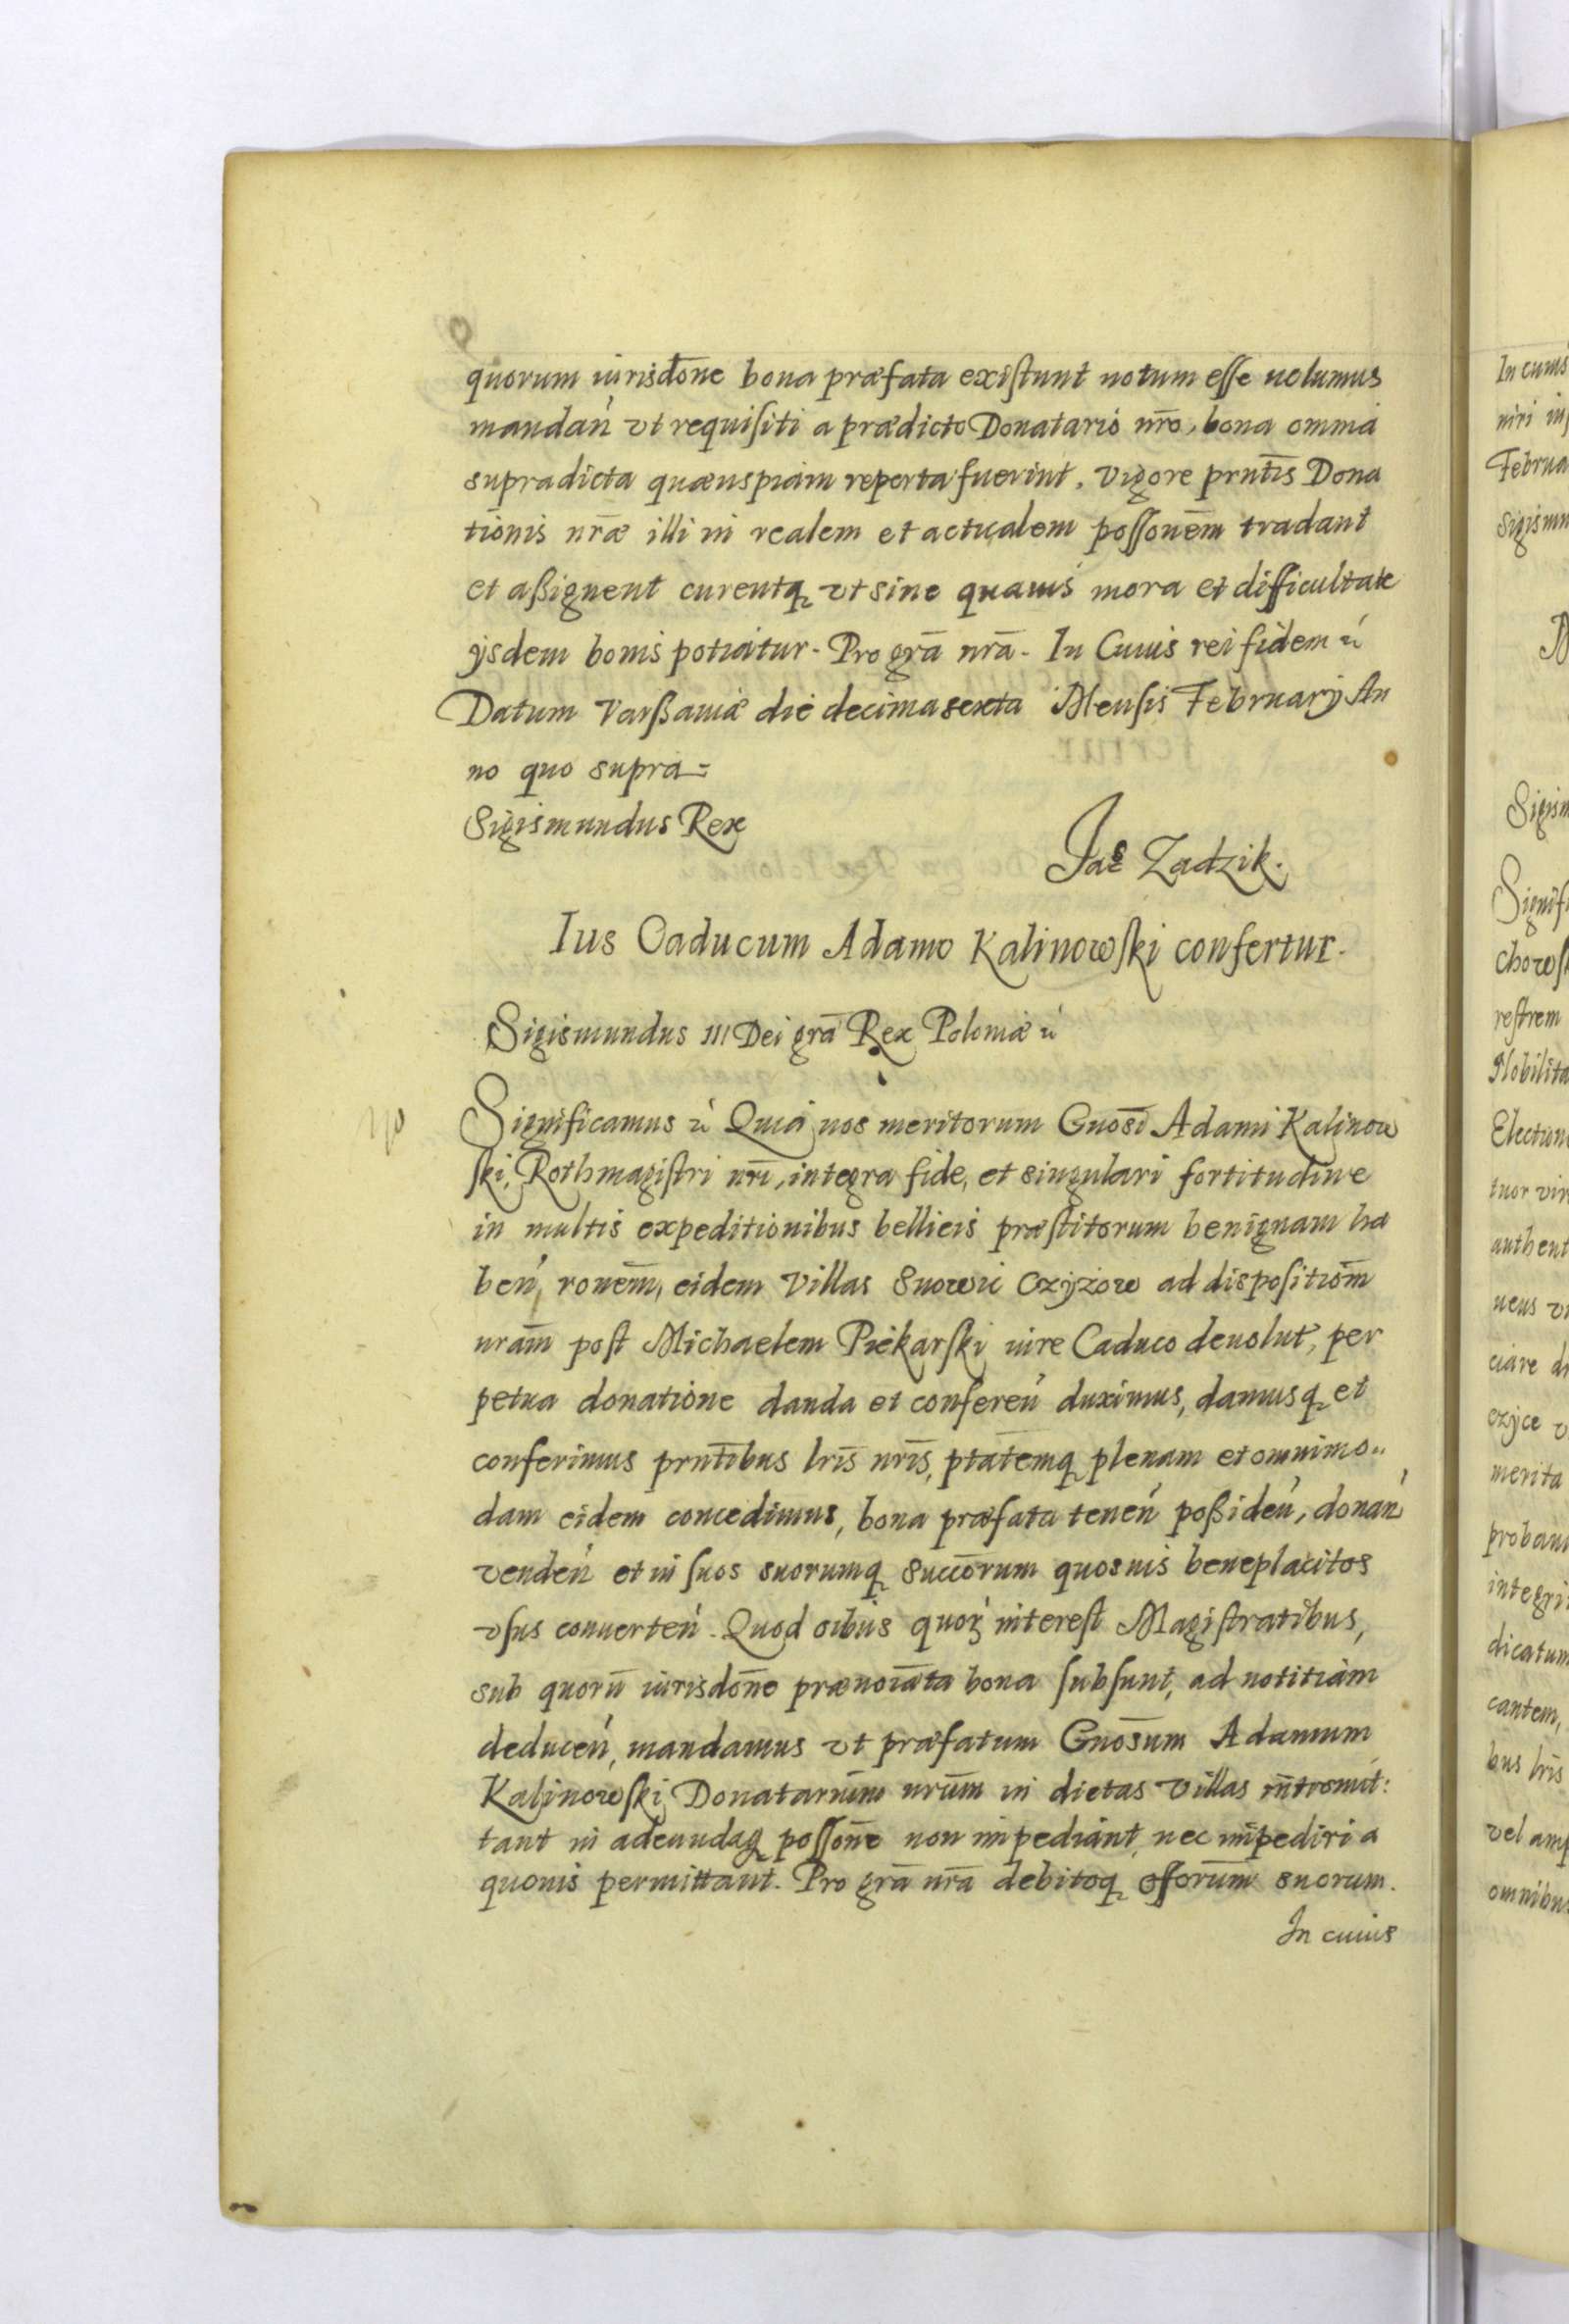 quorum iurisdōne bona præfata existunt notum esse uolumus
mandań vt requisiti a prædicto Donatario nr̄o, bona omnia
supradicta quæuspiam reperta fuerint. vigore prnt̄is Dona
tionis nr̄æ illi in realem et actualem possonēm tradant
et aßignent curentq vt sine quauis mora et difficultate
ijsdem bonis potiatur. Pro grā nrā. In Cuius rei fidem ٪
Datum Varßauiæ die decima sexta Mensis February An
no quo supra
Sigismundus Rex
Jac Zadzik.
Ius Caducum Adamo Kalinowski confertur.
Sigismundus III Dei grā Rex Poloniæ
Significamus Quia nos meritorum Gnosī Adami Kalinow
ski, Rothmagistri nrī, integra fide, et singulari fortitudine
in multis expeditionibus bellicis præstitorum benignam ha
beń, ronēm, eidem villas Snowic Czyżow ad dispositiōm
nrām post Michaelem Piekarski iure Caduco deuolut, per
petua donatione danda et confereń duximus, damusq et
conferimus prnt̄ibus lrīs nrīs, ptātemq plenam et omnimo„
dam eidem concedimus, bona præfata teneń poßideń, donań
vendeń et in suos suorumq succōrum quosuis beneplacitos
vsus conuerteń. Quod oībus quoꝝ interest Magistratibus,
sub quorū iurisdōne prænoiāta bona subsunt, ad notitiam
deduceń, mandamus vt præfatum Gnōsum Adamum
Kalinowski Donatariūm nrūm in dictas villas intromit:
tant in adeundaq possōne non impediant, nec impediri a
quouis permittant. Pro grā nrā debitoq offorūm suorum.
In cuius